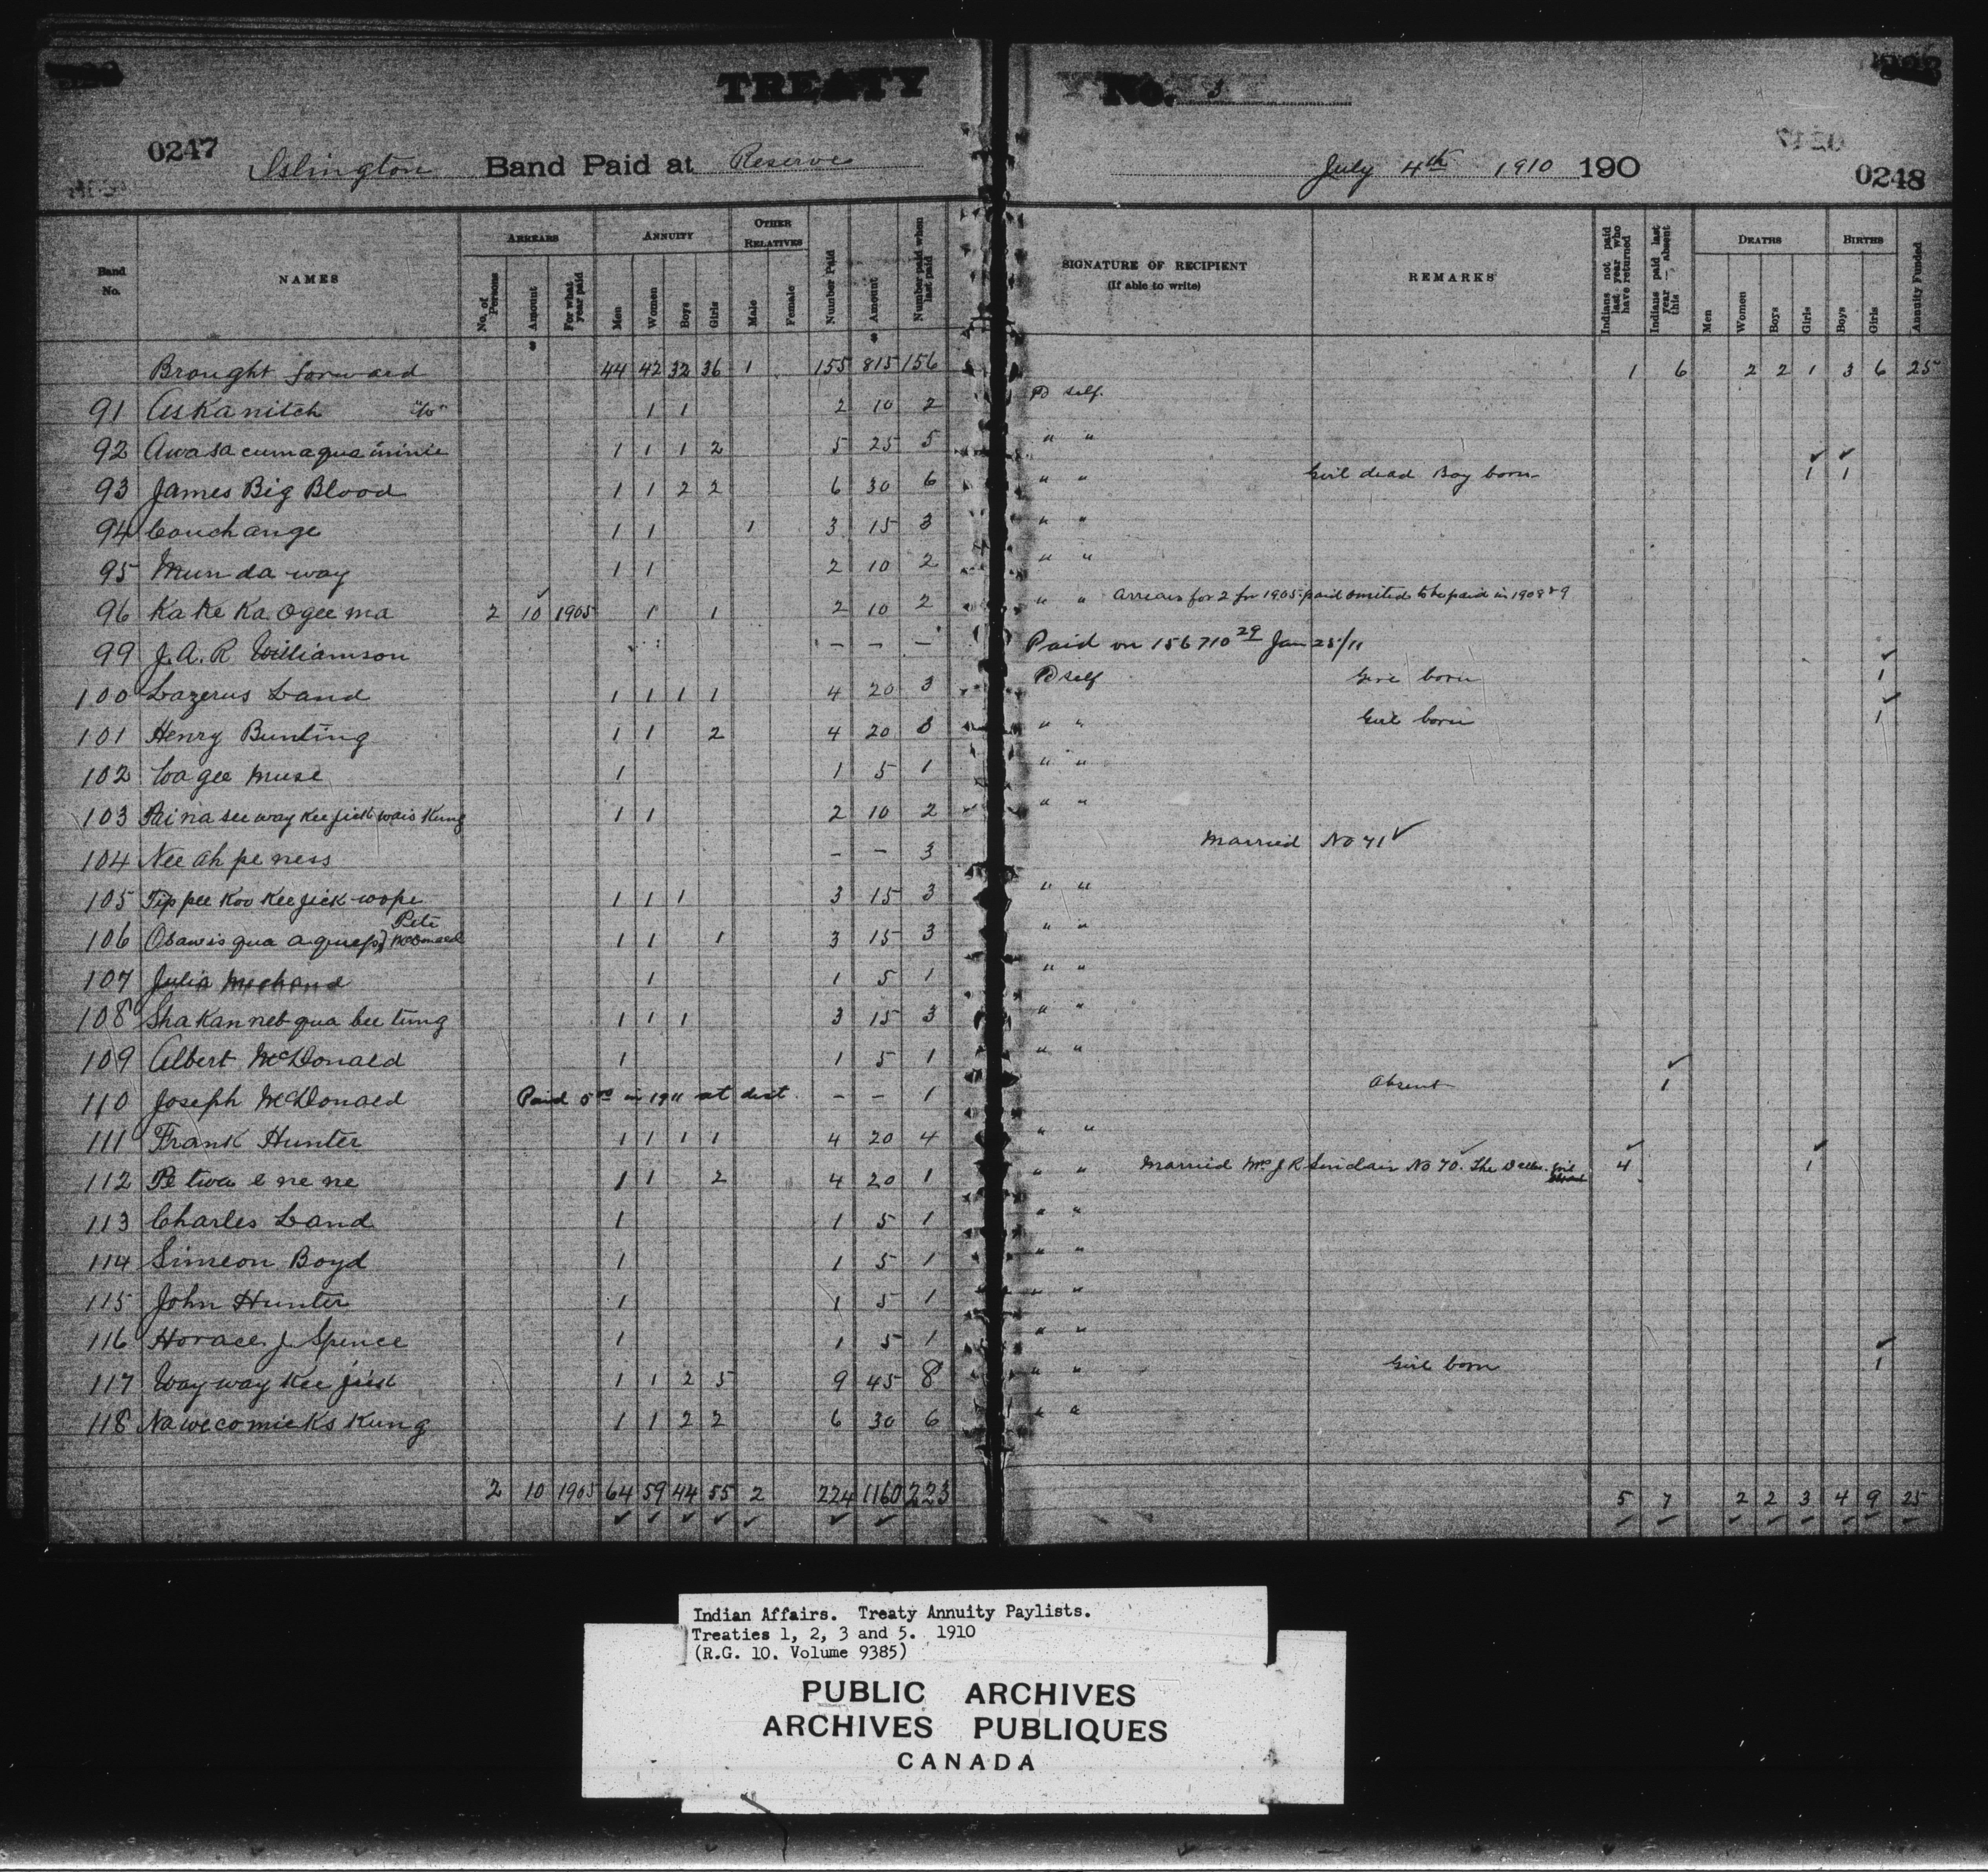 TREATY No. 3
0247 Islington Band Paid at Reserve July 4th 1910 190 0248
Band No. NAMES ARREARS No. of Persons Amount For what year paid ANNUITY Men Women Boys Girls OTHER RELATIVES Male Female Number Paid Amount Number paid when last paid SIGNATURE OF RECIPIENT (If able to write) REMARKS Indians not paid last year who have returned Indians paid last year — absent this DEATHS Men Women Boys Girls BIRTHS Boys Girls Annuity Funded
$ $
Brought forward 44 42 32 36 1 155 815 156 1 6 2 2 1 3 6 25
91 Askanitch "W" 1 1 2 10 2 Pd self.
92 Awasacumaquaminie 1 1 1 2 5 25 5 " "
93 James Big Blood 1 1 2 2 6 30 6 " " Girl dead Boy born 1 1
94 Couchange 1 1 1 3 15 3 " "
95 Mun da way 1 1 2 10 2 " "
96 Ka ke Ka Ogee ma 2 10 1905 1 1 2 10 2 " " Arrears for 2 for 1905 paid omited to be paid in 1908 & 9
99 J.A.R Williamson – – – Paid on 156710 29 Jan 25/11
100 Lazerus Land 1 1 1 1 4 20 3 Pd self Girl born 1
101 Henry Bunting 1 1 2 4 20 3 " " Girl born 1
102 Cagee Muse 1 1 5 1 " "
103 Painaseewaykeejickwais Kung 1 1 2 10 2 " "
104 Nee ah pe ness – – 3 Married No 71
105 Tip pee Koo Keejick-wope 1 1 1 3 15 3 " "
106 Osawis qua a quep, Pete McDonald 1 1 1 3 15 3 " "
107 Julia Michaud 1 1 5 1 " "
108 Sha Kan neb qua bee tung 1 1 1 3 15 3 " "
109 Albert McDonald 1 1 5 1 " "
110 Joseph McDonald Paid 5 00 in 1911 at dist. – – 1 Absent 1
111 Frank Hunter 1 1 1 1 4 20 4 " "
112 Pe twa e ne ne 1 1 2 4 20 1 " " Married Mrs J R Sinclair No 70. The Dalles. Girl 4 1
113 Charles Land 1 1 5 1 " "
114 Simeon Boyd 1 1 5 1 " "
115 John Hunter 1 1 5 1 " "
116 Horace J. Spence 1 1 5 1 " "
117 Way way Kee jick 1 1 2 5 9 45 8 " " Girl born 1
118 Nawecomicks Kung 1 1 2 2 6 30 6 " "
2 10 1905 64 59 44 55 2 224 1160 223 5 7 2 2 3 4 9 25
Indian Affairs. Treaty Annuity Paylists.
Treaties 1, 2, 3 and 5. 1910
(R.G. 10. Volume 9385)
PUBLIC ARCHIVES
ARCHIVES PUBLIQUES
CANADA